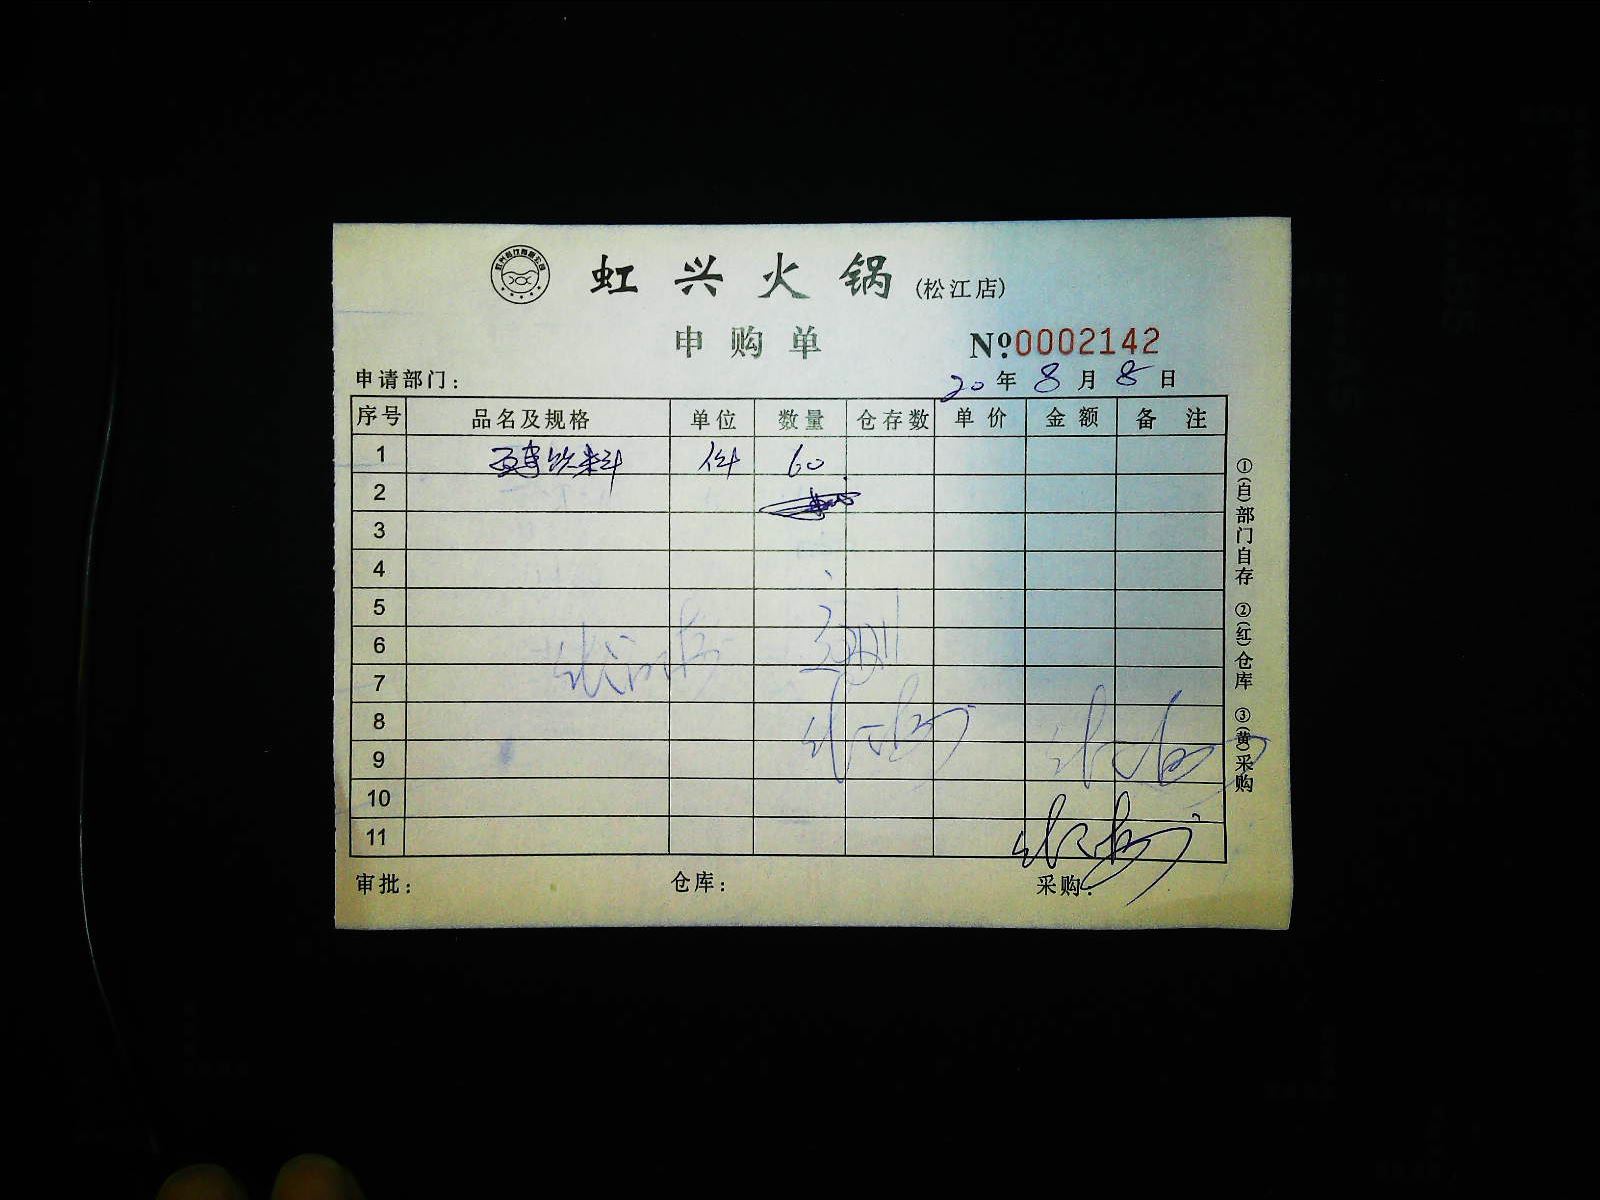 虹兴火锅(松江店)
申购单 Nº:0002142
申请部门： 20年8月8日
序号 品名及规格 单位 数量 仓存数 单价 金额 备注
1 饮料 件 60
2
3
4
5
6
7
8
9
10
11
审批： 仓库： 采购：
①(白)部门自存 ②(红)仓库 ③(黄)采购